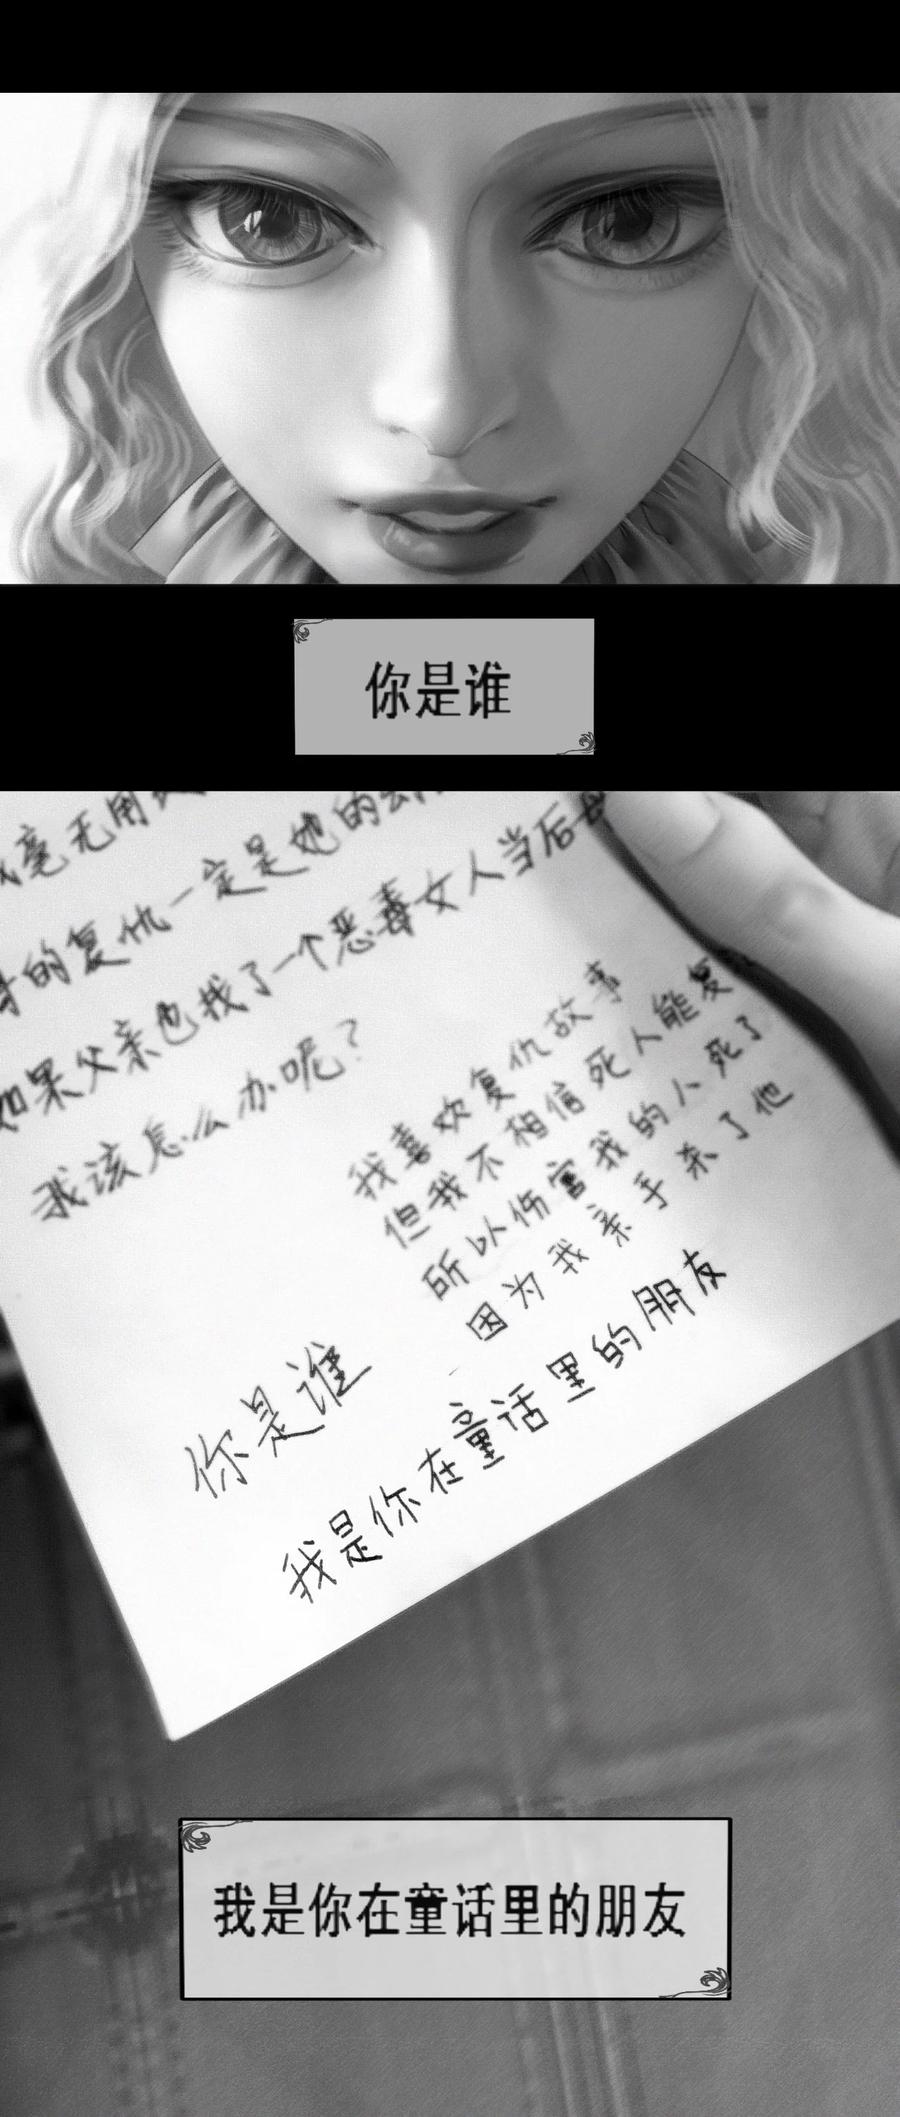 你是谁
毫无用
的复仇一定是她的
如果父亲也找了一个恶毒女人当后母
我该怎么办呢？
我喜欢复仇故事
但我不相信死人能复
所以伤害我的人死了
因为我亲手杀了他
你是谁
我是你在童话里的朋友
我是你在童话里的朋友